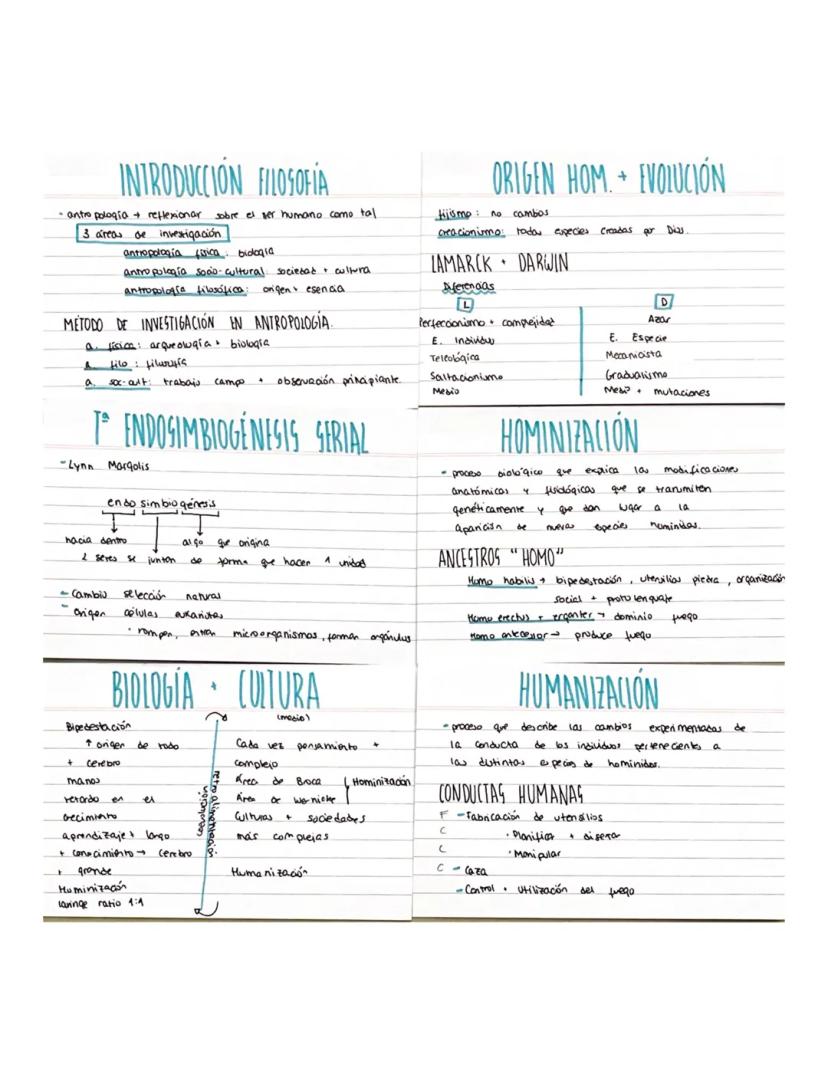 INTRODUCCIÓN FILOSOFÍA
- antropología → reflexionar sobre el ser humano como tal
3 áreas de investigación
antropología física: biología
antropología socio-cultural: sociedad + cultura
antropología filosófica: origen + esencia
MÉTODO DE INVESTIGACIÓN EN ANTROPOLOGÍA.
a. física: arqueología + biología
a. filo: filosofía
a. soc-cult: trabajo campo + observación principiante.
ORIGEN HOM. + EVOLUCIÓN
fijismo: no cambos
creacionismo: todas especies creadas por Dios.
LAMARCK + DARWIN
Diferencias
L D
Perfeccionismo + complejidad Azar
E. Individuo E. Especie
Teleológica Mecanicista
Saltacionismo Gradualismo
Medio Medio + mutaciones
Tª ENDOSIMBIOGÉNESIS SERIAL
- Lynn Margolis
endo simbio génesis
hacia dentro algo que origina
2 seres se juntan de forma que hacen 1 unidad
- Cambio selección natural
- Origen células eukariotas
• rompen, entran microorganismos, forman orgánulos
HOMINIZACIÓN
- proceso biológico que explica las modificaciones
anatómicas y fisiológicas que se transmiten
genéticamente y que dan lugar a la
aparición de nuevas especies homínidas.
ANCESTROS "HOMO"
Homo habilis → bipedestación, utensilios piedra, organización
social + proto lenguaje
Homo erectus + erganter → dominio fuego
Homo antecessor → produce fuego
BIOLOGÍA + CULTURA
(medio)
Bipedestación
↑ origen de todo
+ cerebro
manos
retardo en el
crecimiento
aprendizaje + largo
+ conocimiento → cerebro
+ grande
Hominización
laringe ratio 1:1
retroalimentación
Cada vez pensamiento +
complejo
Área de Broca
Área de Wernicke
Hominización
Culturas + sociedades
más complejas
Humanización
HUMANIZACIÓN
- proceso que describe los cambios experimentados de
la conducta de los individuos pertenecientes a
las distintas especies de homínidos.
CONDUCTAS HUMANAS
F - Fabricación de utensilios
C • Planificar + diseñar
C • Manipular
C - Caza
- Control + utilización del fuego